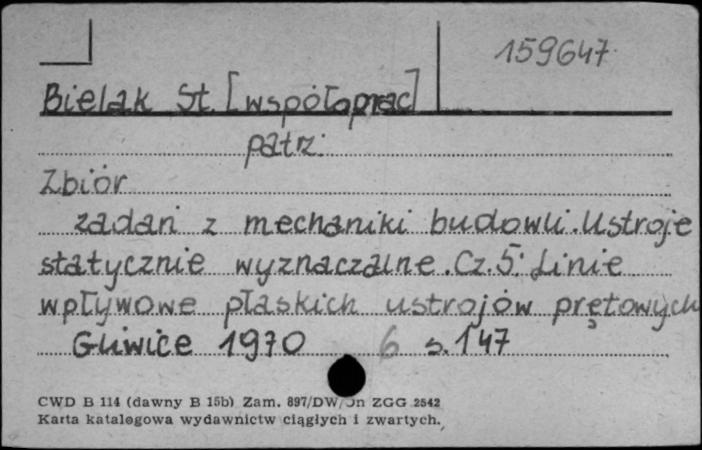 159647
Bielak St. [współoprac]
patrz:
Zbiór
zadań z mechaniki budowli. Ustroje
statycznie wyznaczalne. Cz. 5: Linie
wpływowe płaskich ustrojów prętowych
Gliwice 1970 6 s. 147
CWD B 114 (dawny B 15b) Zam. 897/DW/Jn ZGG 2542
Karta katalogowa wydawnictw ciągłych i zwartych.